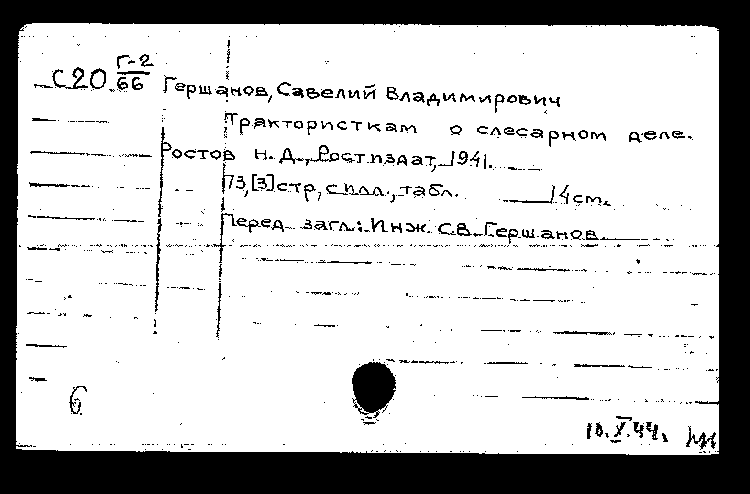 С20 Г-2/66 Гершанов, Савелий Владимирович
Трактористкам о слесарном деле.
Ростов н. Д., Ростиздат, 1941.
73,[3]стр, с илл., табл. 14 см.
Перед загл.: Инж. С.В. Гершанов.
6
10.X.44.